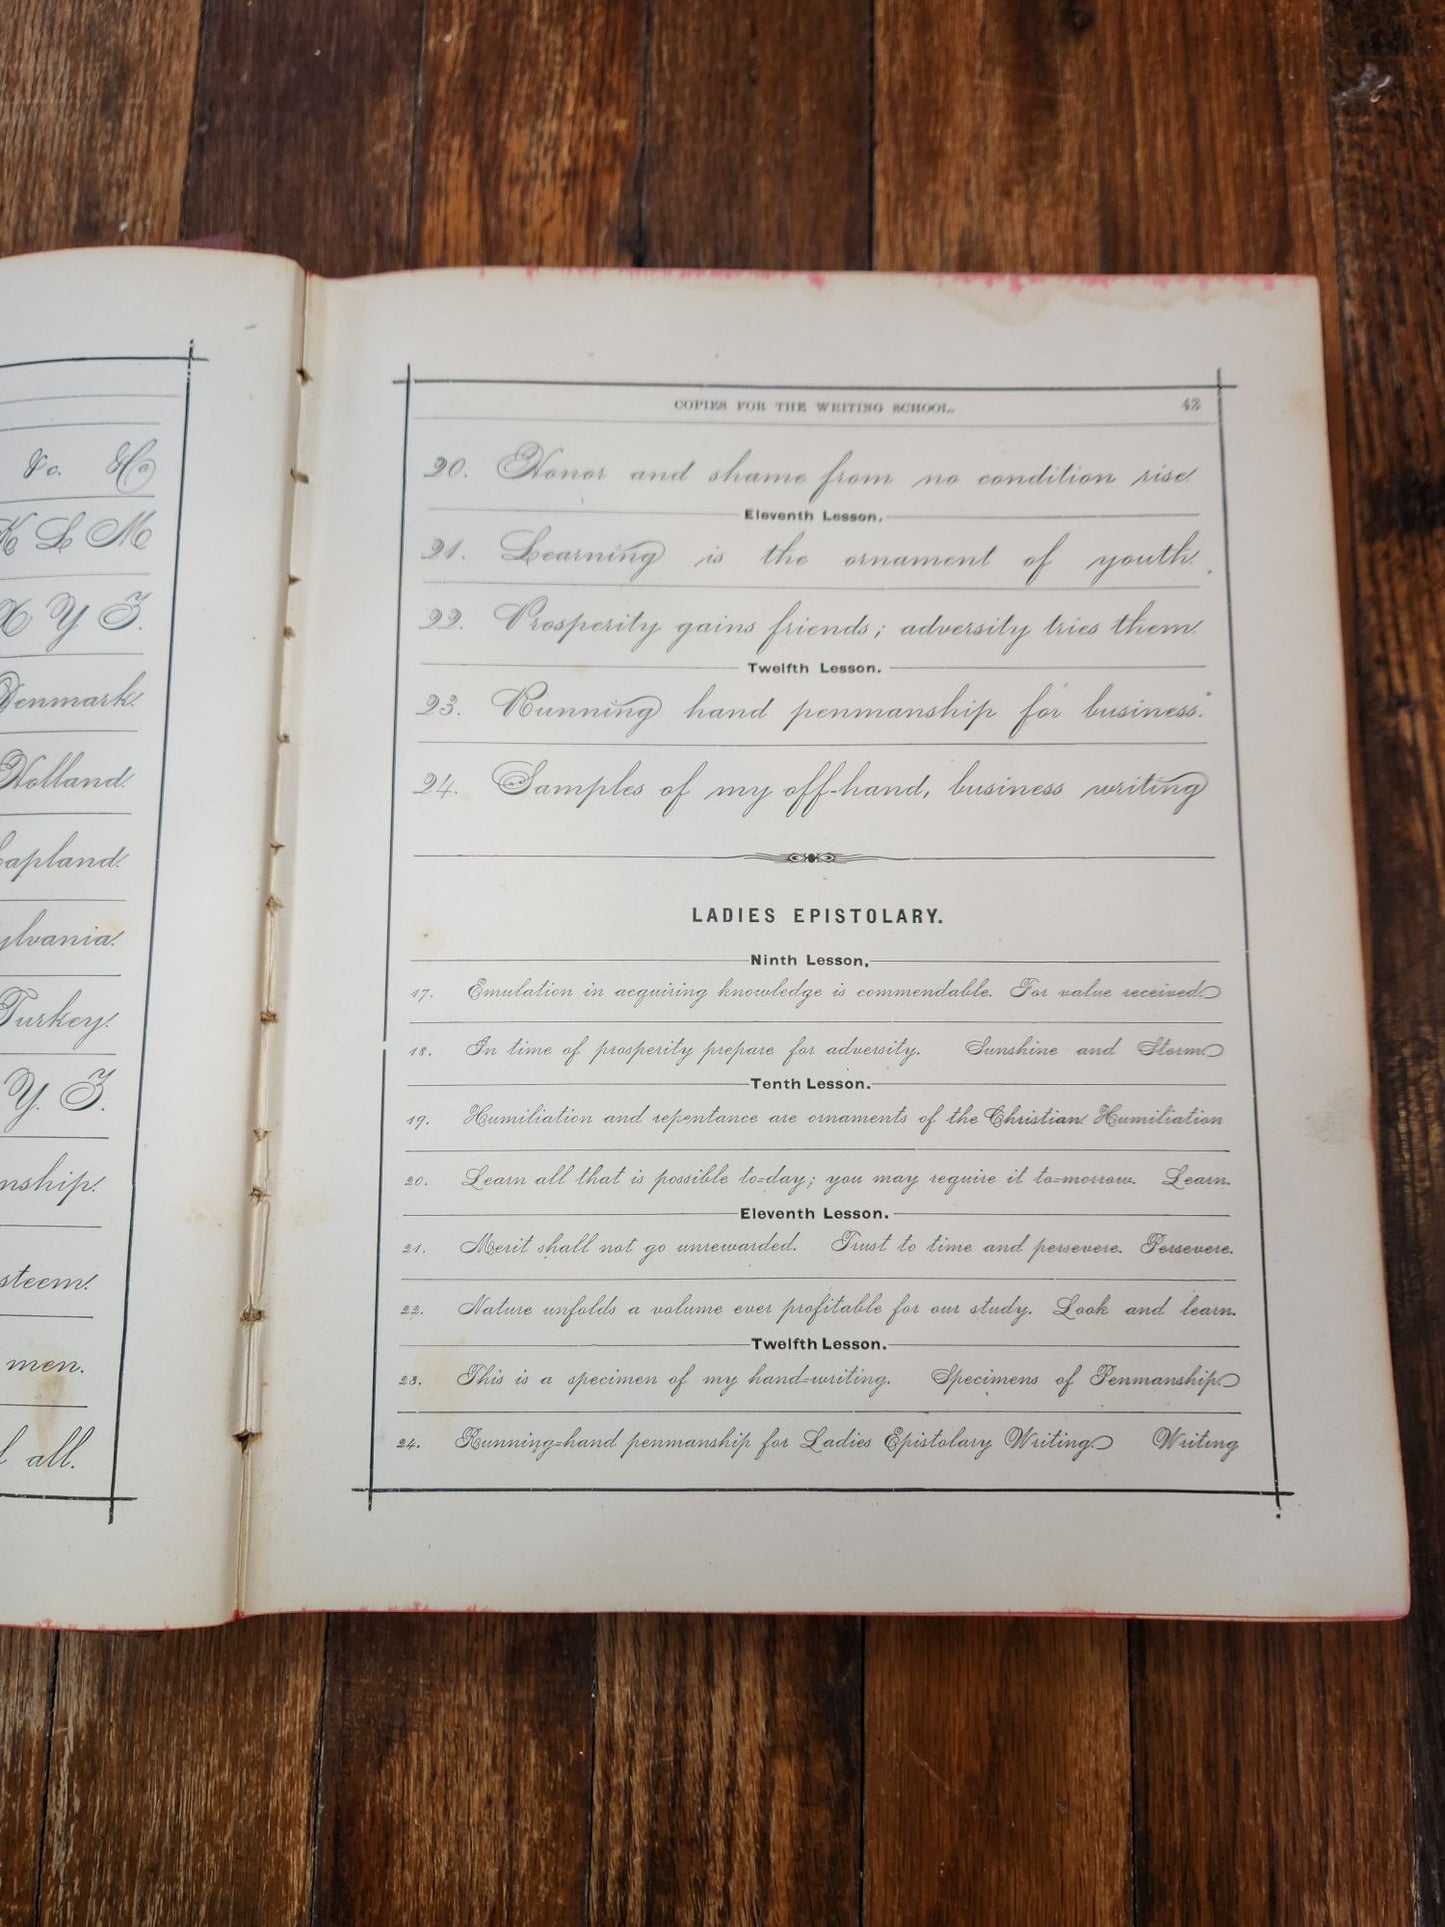 &c. Ho
K L M
X Y Z.
Denmark.
Holland.
Lapland.
ylvania.
Turkey.
Y. Z.
nship.
steem.
men.
l all.
COPIES FOR THE WRITING SCHOOL. 43
20. Honor and shame from no condition rise.
Eleventh Lesson.
21. Learning is the ornament of youth.
22. Prosperity gains friends; adversity tries them.
Twelfth Lesson.
23. Running hand penmanship for business.
24. Samples of my off-hand, business writing
LADIES EPISTOLARY.
Ninth Lesson.
17. Emulation in acquiring knowledge is commendable. For value received.
18. In time of prosperity prepare for adversity. Sunshine and Storm.
Tenth Lesson.
19. Humiliation and repentance are ornaments of the Christian. Humiliation
20. Learn all that is possible to=day; you may require it to=morrow. Learn.
Eleventh Lesson.
21. Merit shall not go unrewarded. Trust to time and persevere. Persevere.
22. Nature unfolds a volume ever profitable for our study. Look and learn.
Twelfth Lesson.
23. This is a specimen of my hand=writing. Specimens of Penmanship.
24. Running=hand penmanship for Ladies Epistolary Writing. Writing